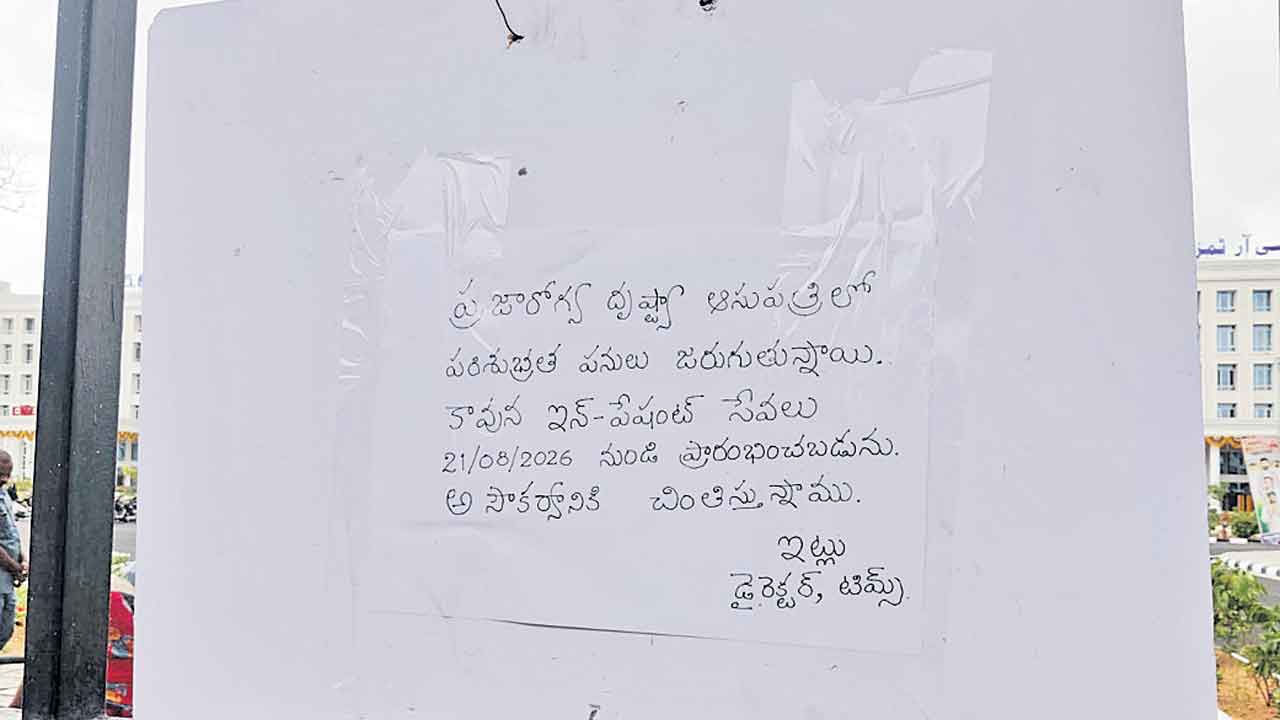 ప్రజారోగ్య దృష్ట్యా ఆసుపత్రిలో
పరిశుభ్రత పనులు జరుగుతున్నాయి.
కావున ఇన్-పేషంట్ సేవలు
21/08/2026 నుండి ప్రారంభించబడును.
అసౌకర్యానికి చింతిస్తున్నాము.
ఇట్లు
డైరెక్టర్, టిమ్స్.